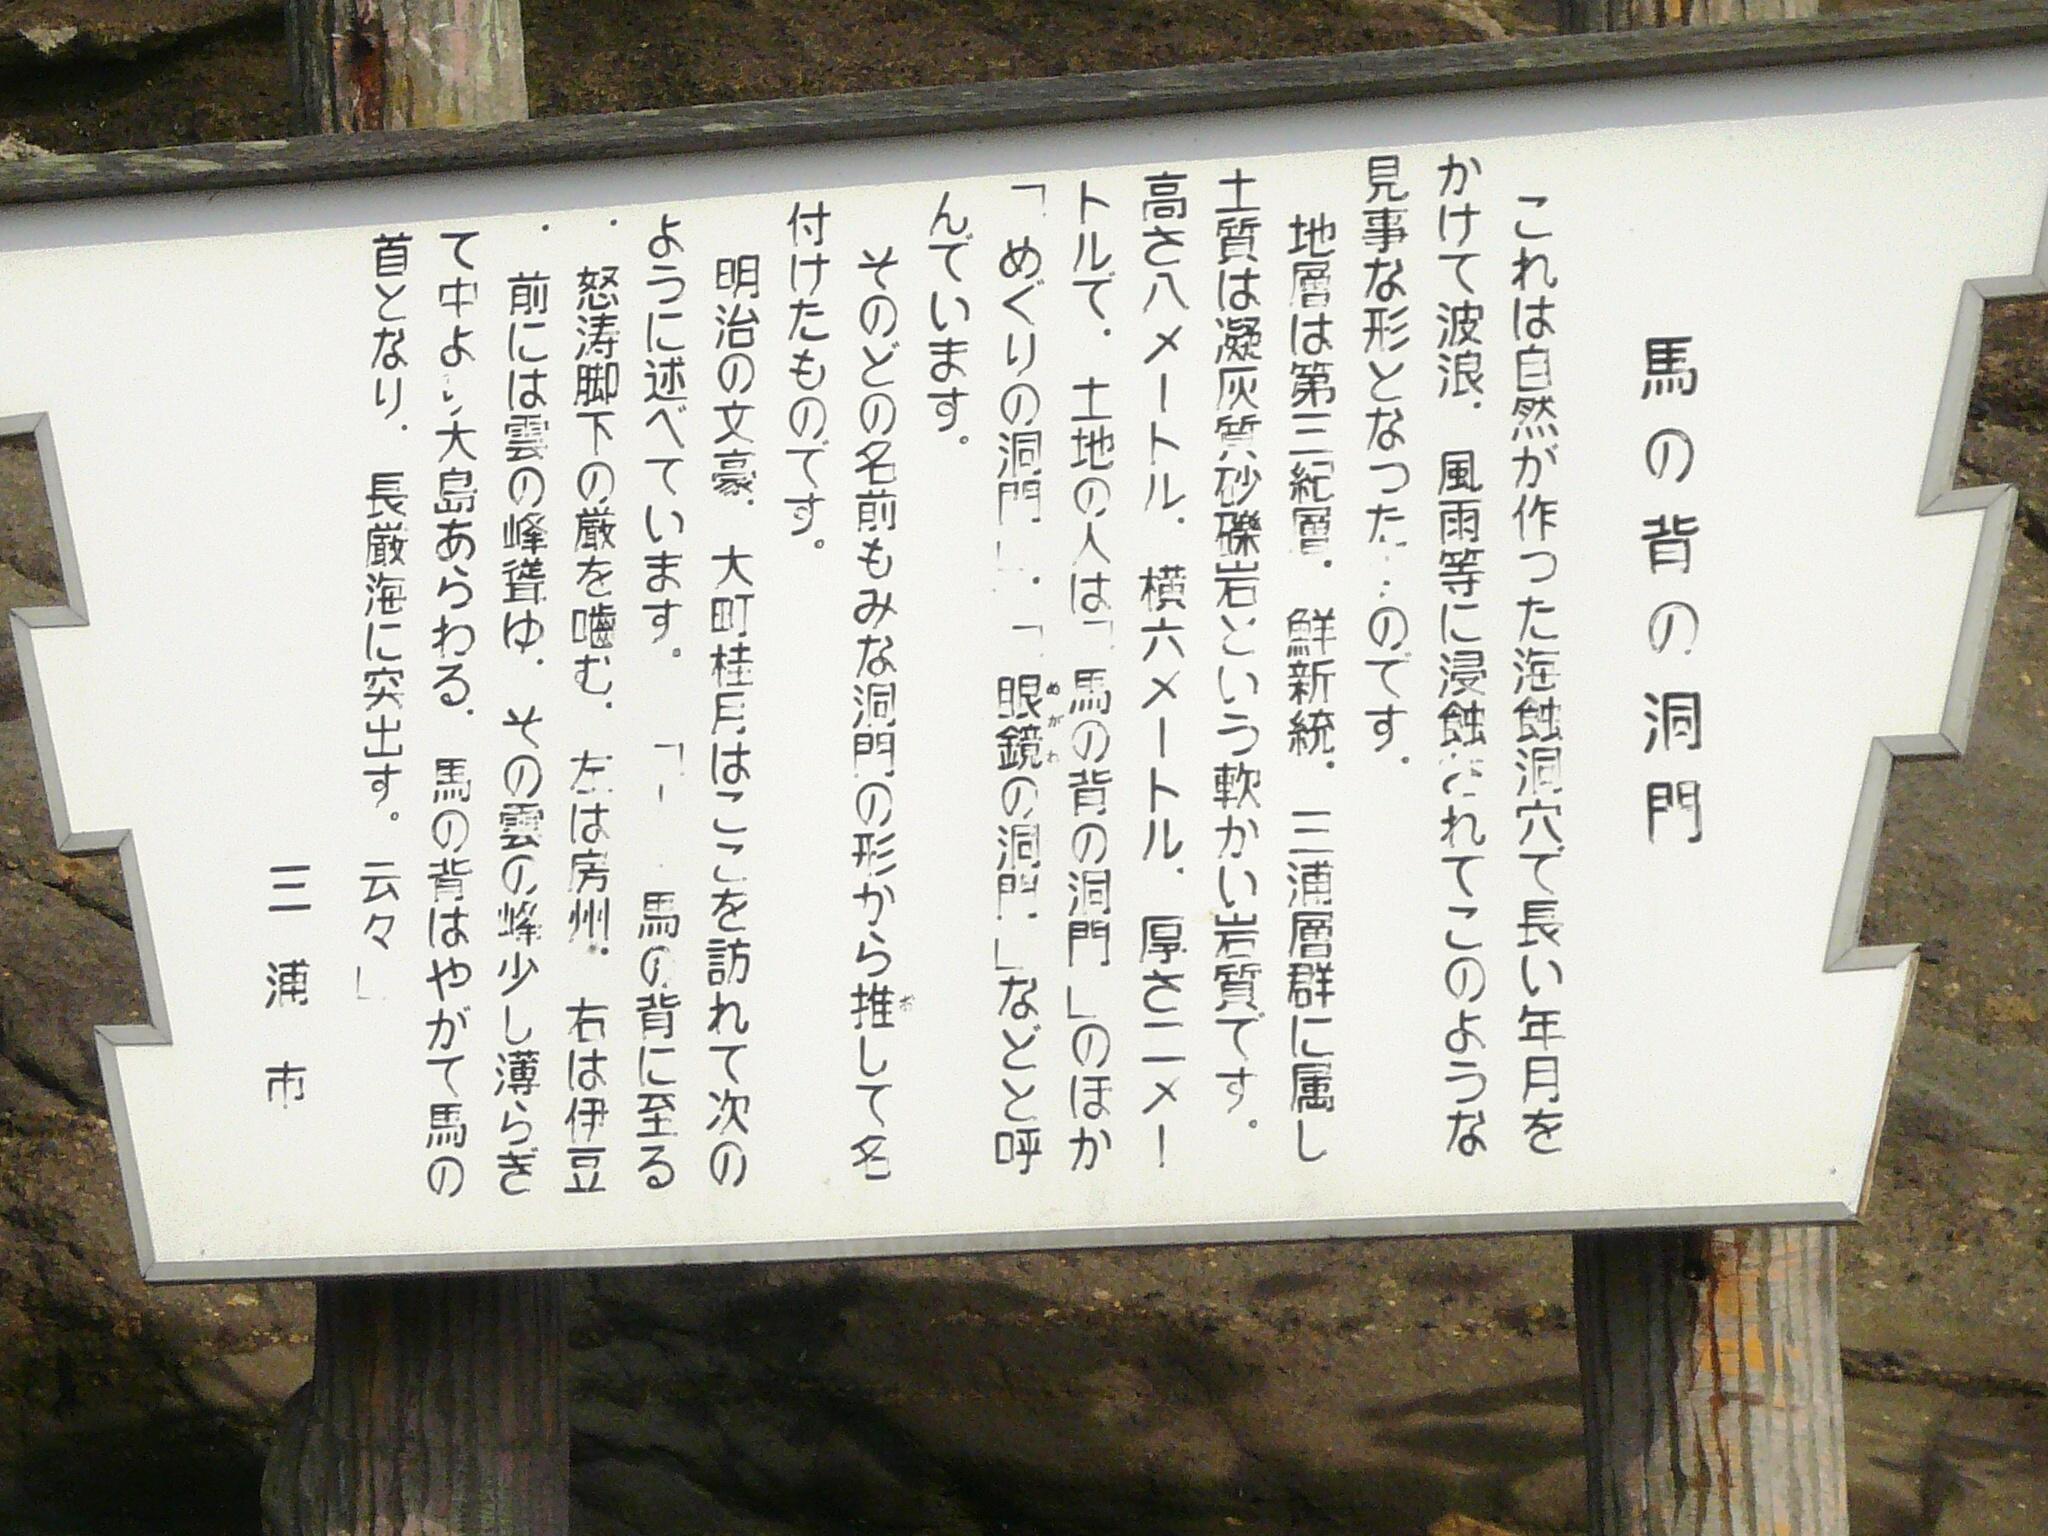 馬の背の洞門
これは自然が作った海蝕洞穴で長い年月を
かけて波浪、風雨等に浸蝕されてこのような
見事な形となつた のです。
地層は第三紀層、鮮新統、三浦層群に属し
土質は凝灰質砂礫岩という軟かい岩質です。
高さ八メートル、横六メートル、厚さ二メー
トルで、土地の人は「馬の背の洞門」のほか
「めぐりの洞門」、「眼鏡の洞門」などと呼
めがね
んでいます。
そのどの名前もみな洞門の形から推して名
お
付けたものです。
明治の文豪、大町桂月はここを訪れて次の
ように述べています。「 馬の背に至る
、怒涛脚下の厳を嚙む、左は房州、右は伊豆
、前には雲の峰聳ゆ、その雲の峰少し薄らぎ
て中より大島あらわる、馬の背はやがて馬の
首となり、長厳海に突出す。云々」
三浦市